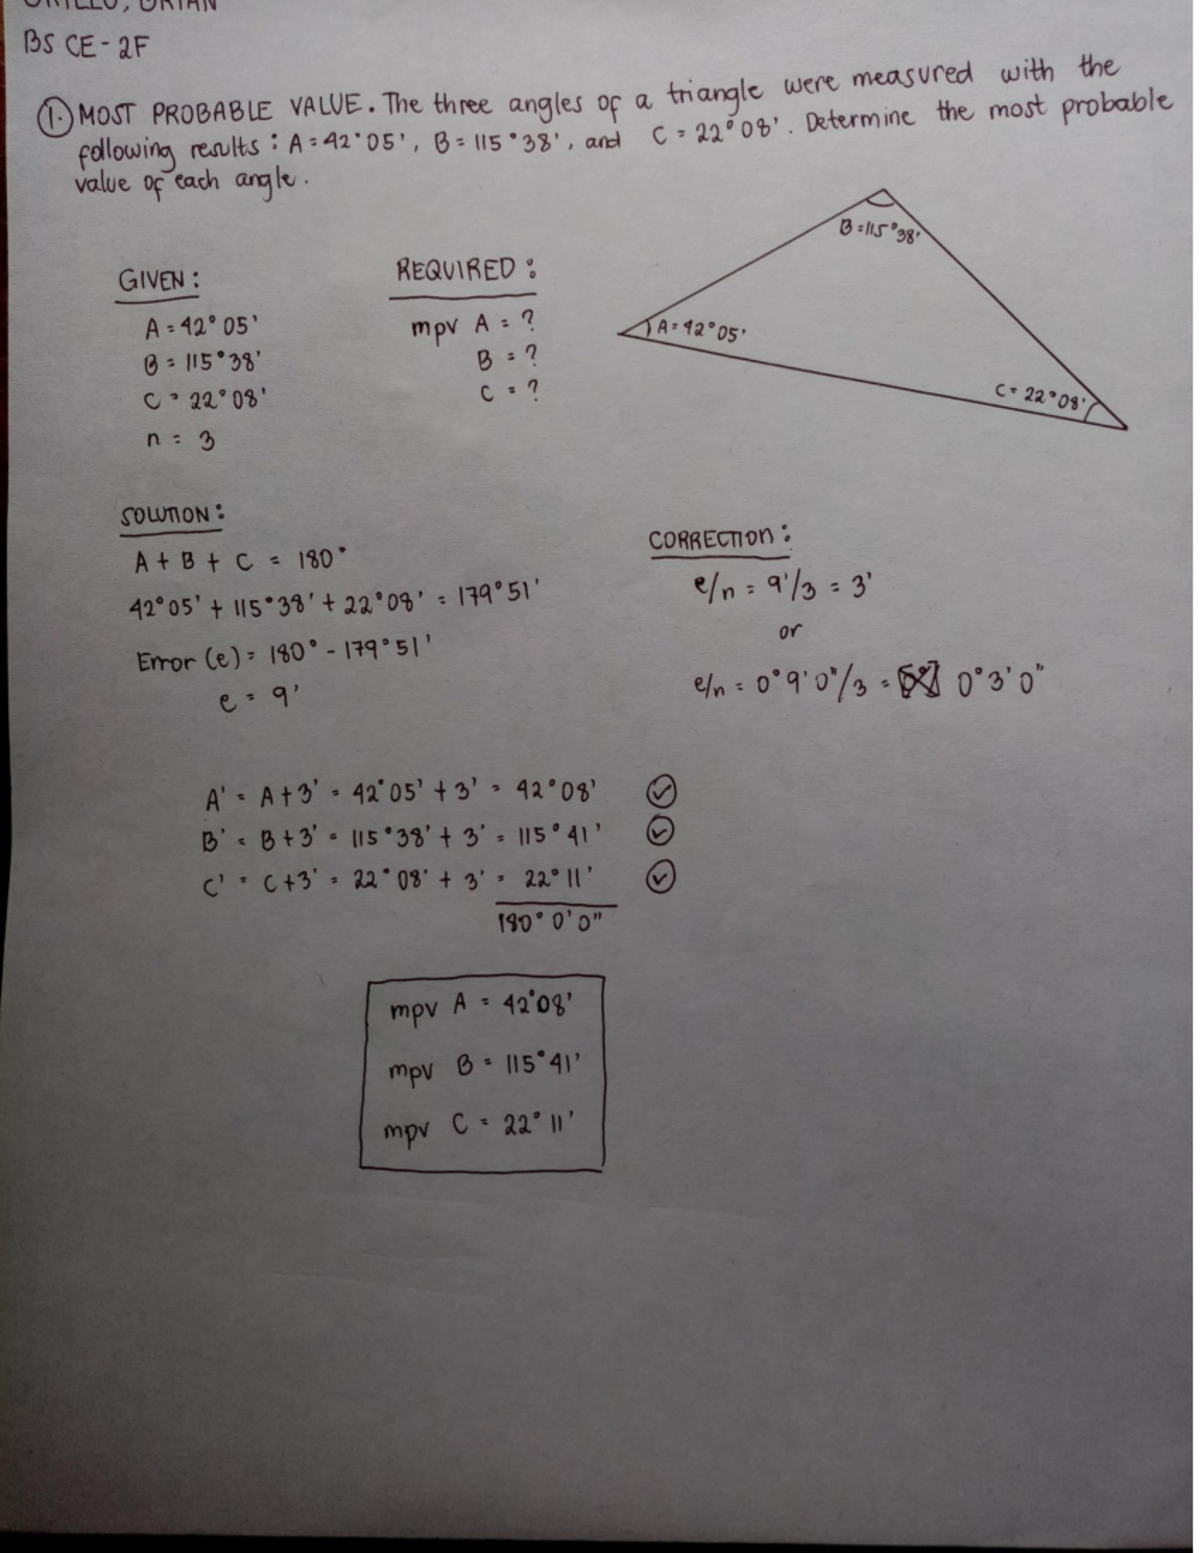 BS CE - 2F
1. MOST PROBABLE VALUE. The three angles of a triangle were measured with the
following results : A = 42°05', B = 115°38', and C = 22°08'. Determine the most probable
value of each angle.
B = 115°38'
A = 42°05'
C = 22°08'
GIVEN :
A = 42° 05'
B = 115°38'
C = 22°08'
n = 3
REQUIRED :
mpv A = ?
B = ?
C = ?
SOLUTION :
A + B + C = 180°
42°05' + 115°38' + 22°08' = 179°51'
Error (e) = 180° - 179°51'
e = 9'
CORRECTION :
e/n = 9'/3 = 3'
or
e/n = 0°9'0"/3 = 0°3'0"
A' = A+3' = 42°05' + 3' = 42°08'
B' = B+3' = 115°38' + 3' = 115°41'
C' = C+3' = 22°08' + 3' = 22°11'
180°0'0"
mpv A = 42°08'
mpv B = 115°41'
mpv C = 22°11'